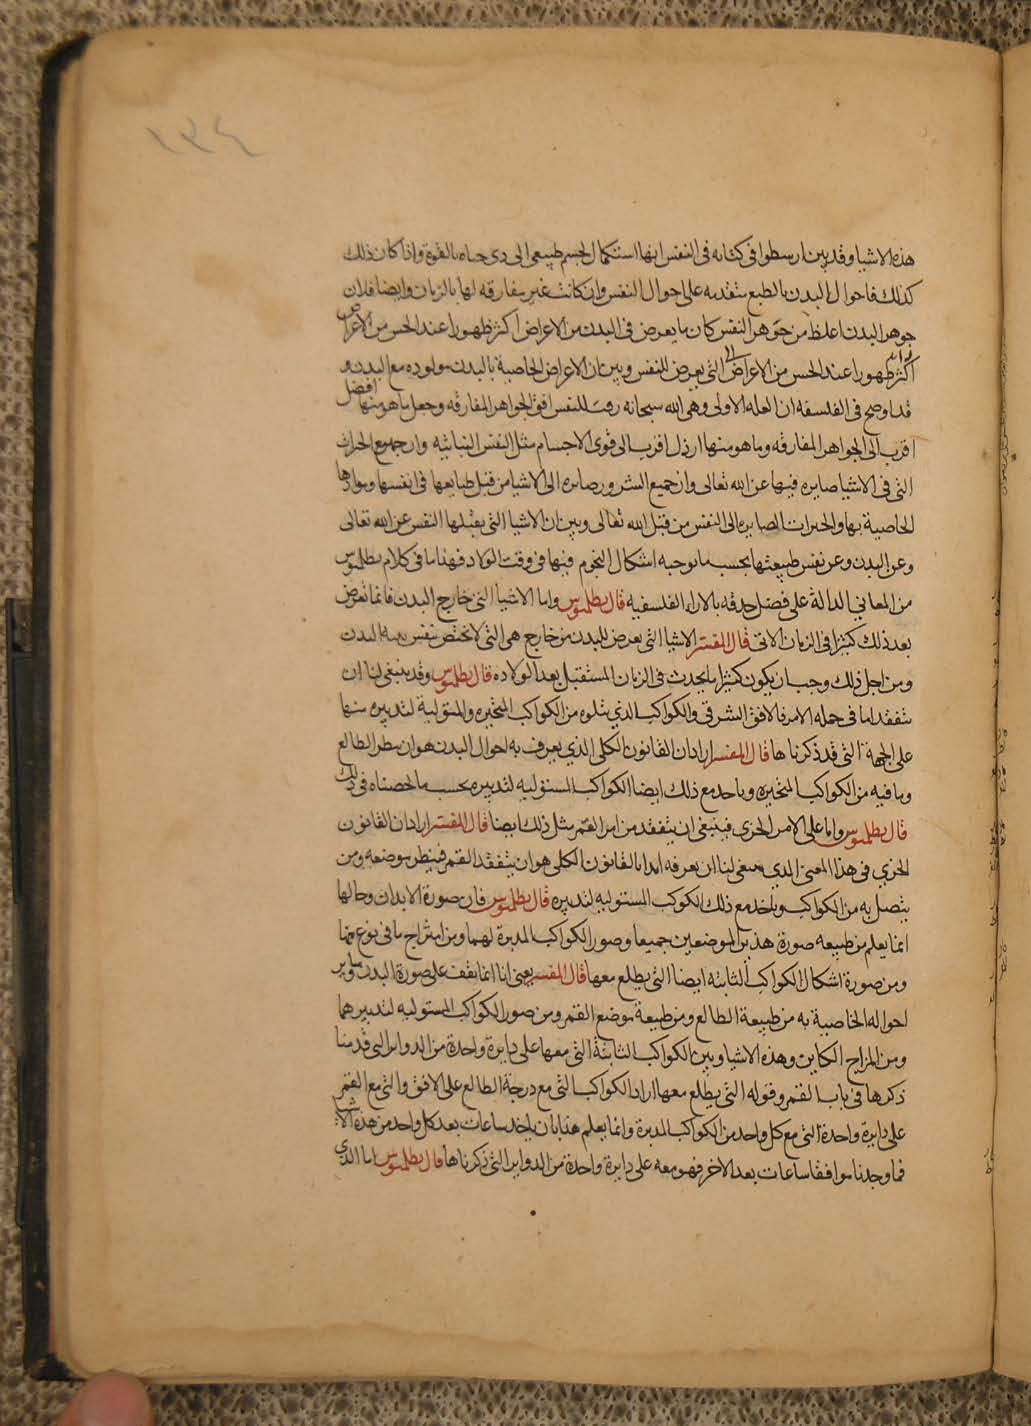 ١٣٤
هذه الاشيا وقد بين ارسطو في كتابه في النفس انها استكمال لجسم طبيعي الي ذي حياه بالقوة واذا كان ذلك
كذلك فاحوال البدن بالطبع متقدمه علي احوال النفس وان كانت غير مفارقه لها بالزمان وايضا فلان
جوهر البدن اغلظ من جوهر النفس كان ما يعرض في البدن من الاعراض اكثر ظهورا عند الحس من الاعراض
اكثر ظهورا عند الحس من الاعراض التي يعرض للنفس وبين ان الاعراض الخاصية بالبدن مولوده مع البدن و
قد اوضح في الفلسفه ان العله الاولي وهي الله سبحانه رتب للنفس افق الجواهر المفارقه وجعل ما هو منها افضل
اقرب الي الجواهر المفارقه وما هو منها ارذل اقرب الي قوي الاجسام مثل النفس النباتيه وان جميع الخيرات
التي في الاشيا صايره فيها عن الله تعالي وان جميع الشرور صايره الي الاشيا من قبل طبايعها في انفسها وموادها
الخاصية بها والخيرات الصايره الي النفس من قبل الله تعالي وبين ان الاشيا التي يقبلها النفس عن الله تعالي
وعن البدن وعن نفس طبيعتها بحسب ما توجبه اشكال النجوم فيها في وقت الولاد فهذا ما في كلام بطلميوس
من المعاني الدالة علي فضل حذقه بالاراء الفلسفيه قال بطلميوس واما الاشيا التي خارج البدن فانما تعرض
بعد ذلك كثيرا في الزمان الاتي قال المفسر الاشيا التي يعرض للبدن من خارج هي التي لا تختص بنفس بنيه البدن
ومن اجل ذلك وجب ان يكون كثيرا ما يحدث في الزمان المستقبل بعد الولاده قال بطلميوس وقد ينبغي لنا ان
نتفقد اما في جمله الامر فالافق الشرقي والكواكب الذي تتلوه من الكواكب المتحيره والمتولية لتدبيره منها
علي الجهة التي قد ذكرناها قال المفسر اراد ان القانون الكلي الذي يعرف به احوال البدن هو ان ينظر الطالع
وما فيه من الكواكب المتحيره وياخد مع ذلك ايضا الكواكب المستوليه لتدبيره بحسب ما لخصناه في ذلك
قال بطلميوس واما علي الامر الجزي فينبغي ان يتفقد من امر القمر مثل ذلك ايضا قال المفسر اراد ان القانون
الجزي في هذا المعني الذي ينبغي لنا ان نعرفه ابدا بالقانون الكلي هو ان يتفقد القمر فينظر موضعه ومن
يتصل به من الكواكب وياخد مع ذلك الكوكب المستوليه لتدبيره قال بطلميوس فان صورة الابدان وحالها
انما يعلم من طبيعه صورة هذين الموضعين جميعا وصور الكواكب المدبرة لهما ومن امتزاج ما في نوع منها
ومن صورة اشكال الكواكب الثابته ايضا التي يطلع معها قال المفسر يعني انا انما نقف علي صورة البدن وساير
احواله الخاصية به من طبيعة الطالع ومن طبيعة موضع القمر ومن صور الكواكب المستوليه لتدبيرهما
ومن المزاج الكاين وهذه الاشيا وبين الكواكب الثابتة التي معها علي دايرة واحدة من الدواير التي قدمنا
ذكرها في باب القمر وقوله التي يطلع معها اراد الكواكب التي مع درجة الطالع علي الافق والتي مع القمر
علي دايرة واحدة التي مع كل واحد من الكواكب المدبرة وانما يعلم هذا بان ياخد ساعات بعد كل واحد من هذه
فما وجدنا موافقا ساعات بعد الاخر فهو معه علي دايرة واحدة من الدواير التي ذكرناها قال بطلميوس اما الذي